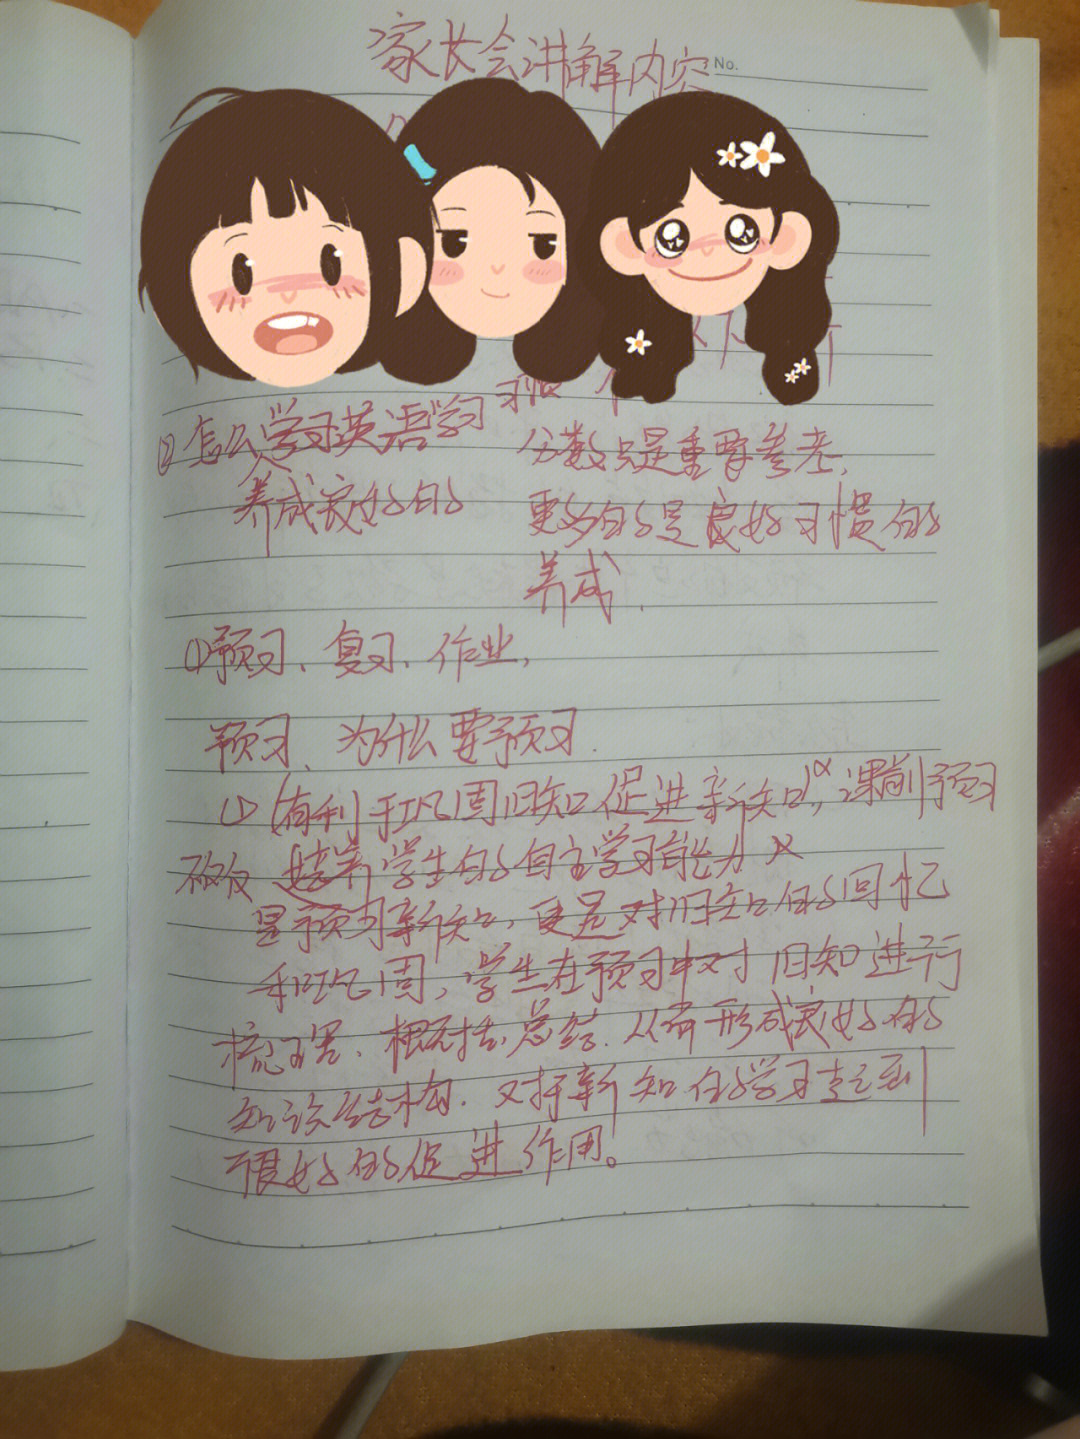 家长会讲解内容
No.
② 怎么学习英语学习
养成良好的
习惯
分数只是重要参考,
更多的是良好习惯的
养成.
①预习、复习、作业,
预习、为什么要预习.
① (有利于巩固旧知促进新知), 课前预习
不仅仅 培养学生的自主学习能力
是预习新知, 更是对旧知的回忆
和巩固, 学生在预习中对旧知进行
梳理、概括总结. 从而形成良好的
知识结构. 又对新知的学习起到
很好的促进作用。